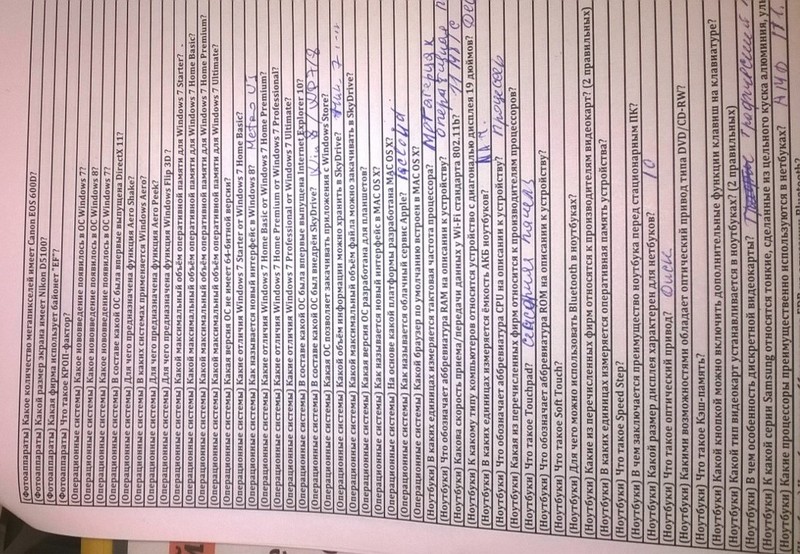 (Фотоаппараты) Какое количество мегапикселей имеет Canon EOS 600D?
(Фотоаппараты) Какой размер экрана имеет Nikon D5100?
(Фотоаппараты) Какая фирма использует байонет "EF"?
(Фотоаппараты) Что такое КРОП-фактор?
(Операционные системы) Какое нововведение появилось в ОС Windows 7?
(Операционные системы) Какое нововведение появилось в ОС Windows 8?
(Операционные системы) Какое нововведение появилось в ОС Windows 7?
(Операционные системы) В составе какой ОС была впервые выпущена DirectX 11?
(Операционные системы) Для чего предназначена функция Aero Shake?
(Операционные системы) В каких системах применяется Windows Aero?
(Операционные системы) Для чего предназначена функция Aero Peek?
(Операционные системы) Для чего предназначена функция Windows Flip 3D?
(Операционные системы) Какой максимальный объём оперативной памяти для Windows 7 Starter?
(Операционные системы) Какой максимальный объём оперативной памяти для Windows 7 Home Basic?
(Операционные системы) Какой максимальный объём оперативной памяти для Windows 7 Home Premium?
(Операционные системы) Какой максимальный объём оперативной памяти для Windows 7 Ultimate?
(Операционные системы) Какая версия ОС не имеет 64-битной версии?
(Операционные системы) Какие отличия Windows 7 Starter от Windows 7 Home Basic?
(Операционные системы) Как называется новый интерфейс в Windows 8? Metro UI
(Операционные системы) Какие отличия Windows 7 Home Basic от Windows 7 Home Premium?
(Операционные системы) Какие отличия Windows 7 Home Premium от Windows 7 Professional?
(Операционные системы) Какие отличия Windows 7 Professional от Windows 7 Ultimate?
(Операционные системы) В составе какой ОС была впервые выпущена Internet Explorer 10?
(Операционные системы) В составе какой ОС был внедрён SkyDrive? Win 8 / WP7/8
(Операционные системы) Какая ОС позволяет закачивать приложения с Windows Store?
(Операционные системы) Какой объём информации можно хранить в SkyDrive?
(Операционные системы) Какой максимальный объём файла можно закачивать в SkyDrive?
(Операционные системы) Какая версия ОС разработана для планшетов?
(Операционные системы) Как называется новый интерфейс в MAC OS X?
(Операционные системы) На основе какой платформы разработана MAC OS X?
(Операционные системы) Как называется облачный сервис Apple? iCloud
(Операционные системы) Какой браузер по умолчанию встроен в MAC OS X?
(Ноутбуки) В каких единицах измеряется тактовая частота процессора?
(Ноутбуки) Что обозначает аббревиатура RAM на описании к устройству? Оперативная
(Ноутбуки) Какова скорость приема/передачи данных у Wi-Fi стандарта 802.11b? 11 Мб/с
(Ноутбуки) К какому типу компьютеров относится устройство с диагональю дисплея 19 дюймов?
(Ноутбуки) В каких единицах измеряется ёмкость АКБ ноутбуков?
(Ноутбуки) Что обозначает аббревиатура CPU на описании к устройству? Процессор
(Ноутбуки) Какая из перечисленных фирм относится к производителям процессоров?
(Ноутбуки) Что такое Touchpad? Сенсорная панель
(Ноутбуки) Что обозначает аббревиатура ROM на описании к устройству?
(Ноутбуки) Что такое Soft Touch?
(Ноутбуки) Для чего можно использовать Bluetooth в ноутбуках?
(Ноутбуки) Какие из перечисленных фирм относятся к производителям видеокарт? (2 правильных)
(Ноутбуки) В каких единицах измеряется оперативная память устройства?
(Ноутбуки) Что такое Speed Step?
(Ноутбуки) В чем заключается преимущество ноутбука перед стационарным ПК?
(Ноутбуки) Какой размер дисплея характерен для нетбуков? 10
(Ноутбуки) Что такое оптический привод? Диск
(Ноутбуки) Какими возможностями обладает оптический привод типа DVD/CD-RW?
(Ноутбуки) Что такое Кэш-память?
(Ноутбуки) Какой кнопкой можно включить дополнительные функции клавиш на клавиатуре?
(Ноутбуки) Какой тип видеокарт устанавливается в ноутбуках? (2 правильных)
(Ноутбуки) В чем особенность дискретной видеокарты?
(Ноутбуки) К какой серии Samsung относятся тонкие, сделанные из цельного куска алюминия,
(Ноутбуки) Какие процессоры преимущественно используются в нетбуках?